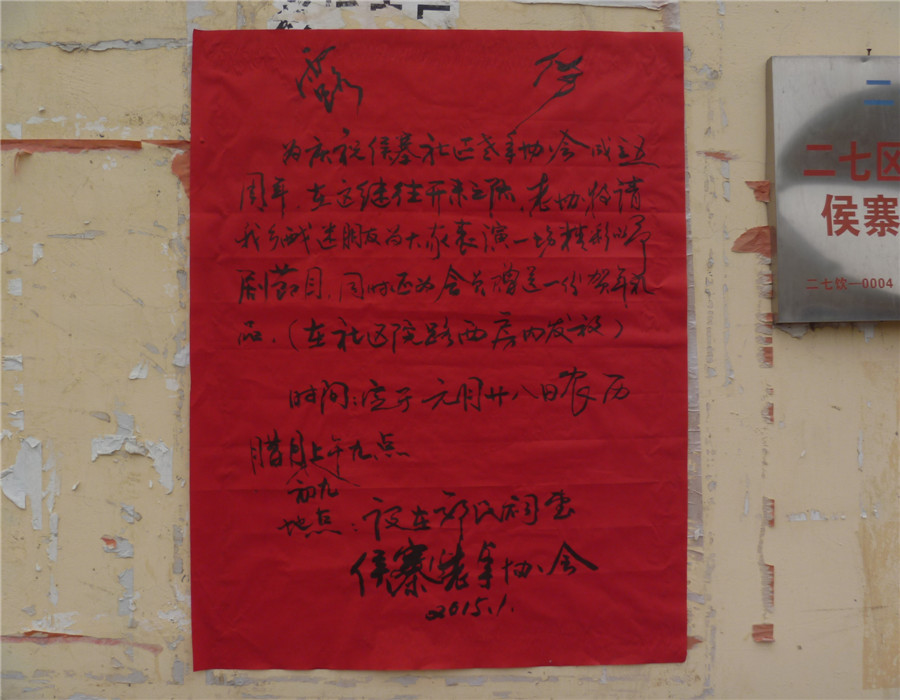 露
为庆祝侯寨社区老年协会成立五
周年,在这继往开来之际,老协特请
我乡戏迷朋友为大家表演一场精彩的
剧节目,同时还为会员赠送一份贺年礼
品。(在社区院路西房内发放)
时间:定于元月廿八日农历
腊月上午九点
初九
地点:设在氏祠堂
侯寨老年协会
2015.1.
二
二七区
侯寨
二七饮—0004